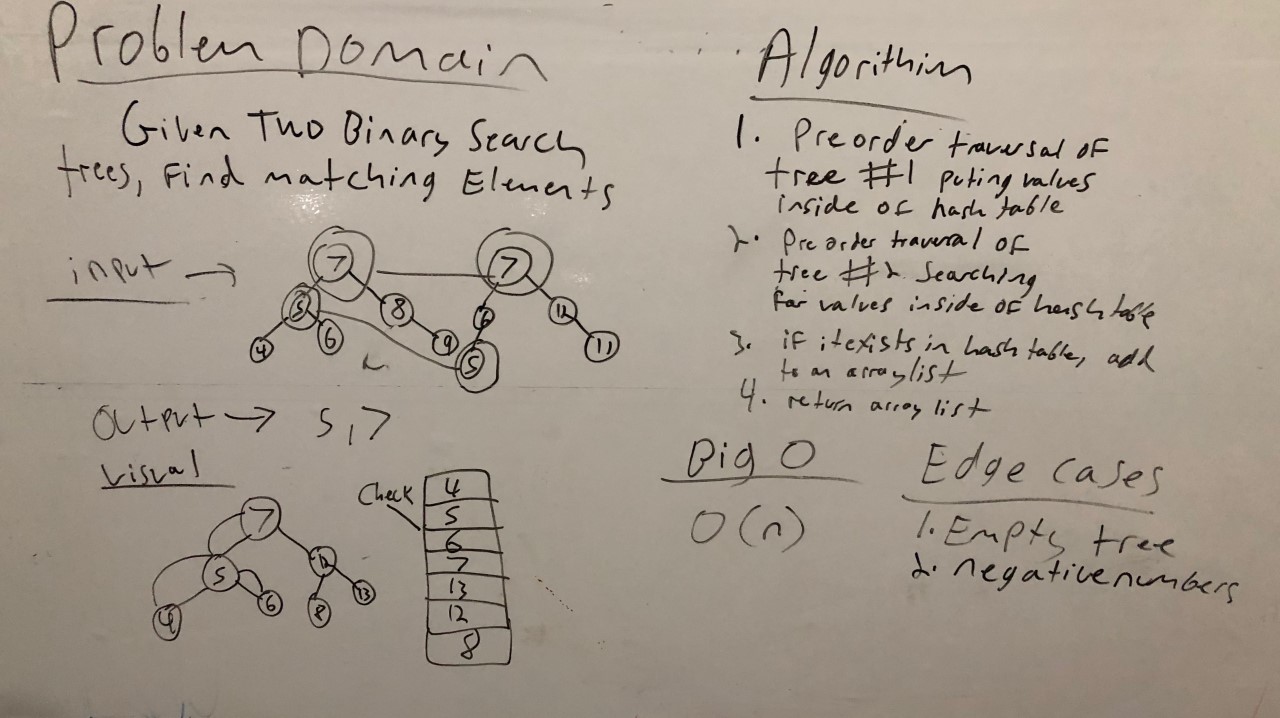 Problem Domain
Given Two Binary Search
trees, Find matching Elements
input →
7 7
5 8 6 12
4 6 9 5 11
output → 5,7
visual
7
5 12
4 6 8 13
Check
4
5
6
7
13
12
8
Algorithim
1. Preorder traversal of
tree #1 puting values
inside of hash table
2. Preorder traversal of
tree #2 searching
for values inside of hash table
3. if it exists in hash table, add
to an arraylist
4. return array list
Big O
O(n)
Edge cases
1. Empty tree
2. negative numbers